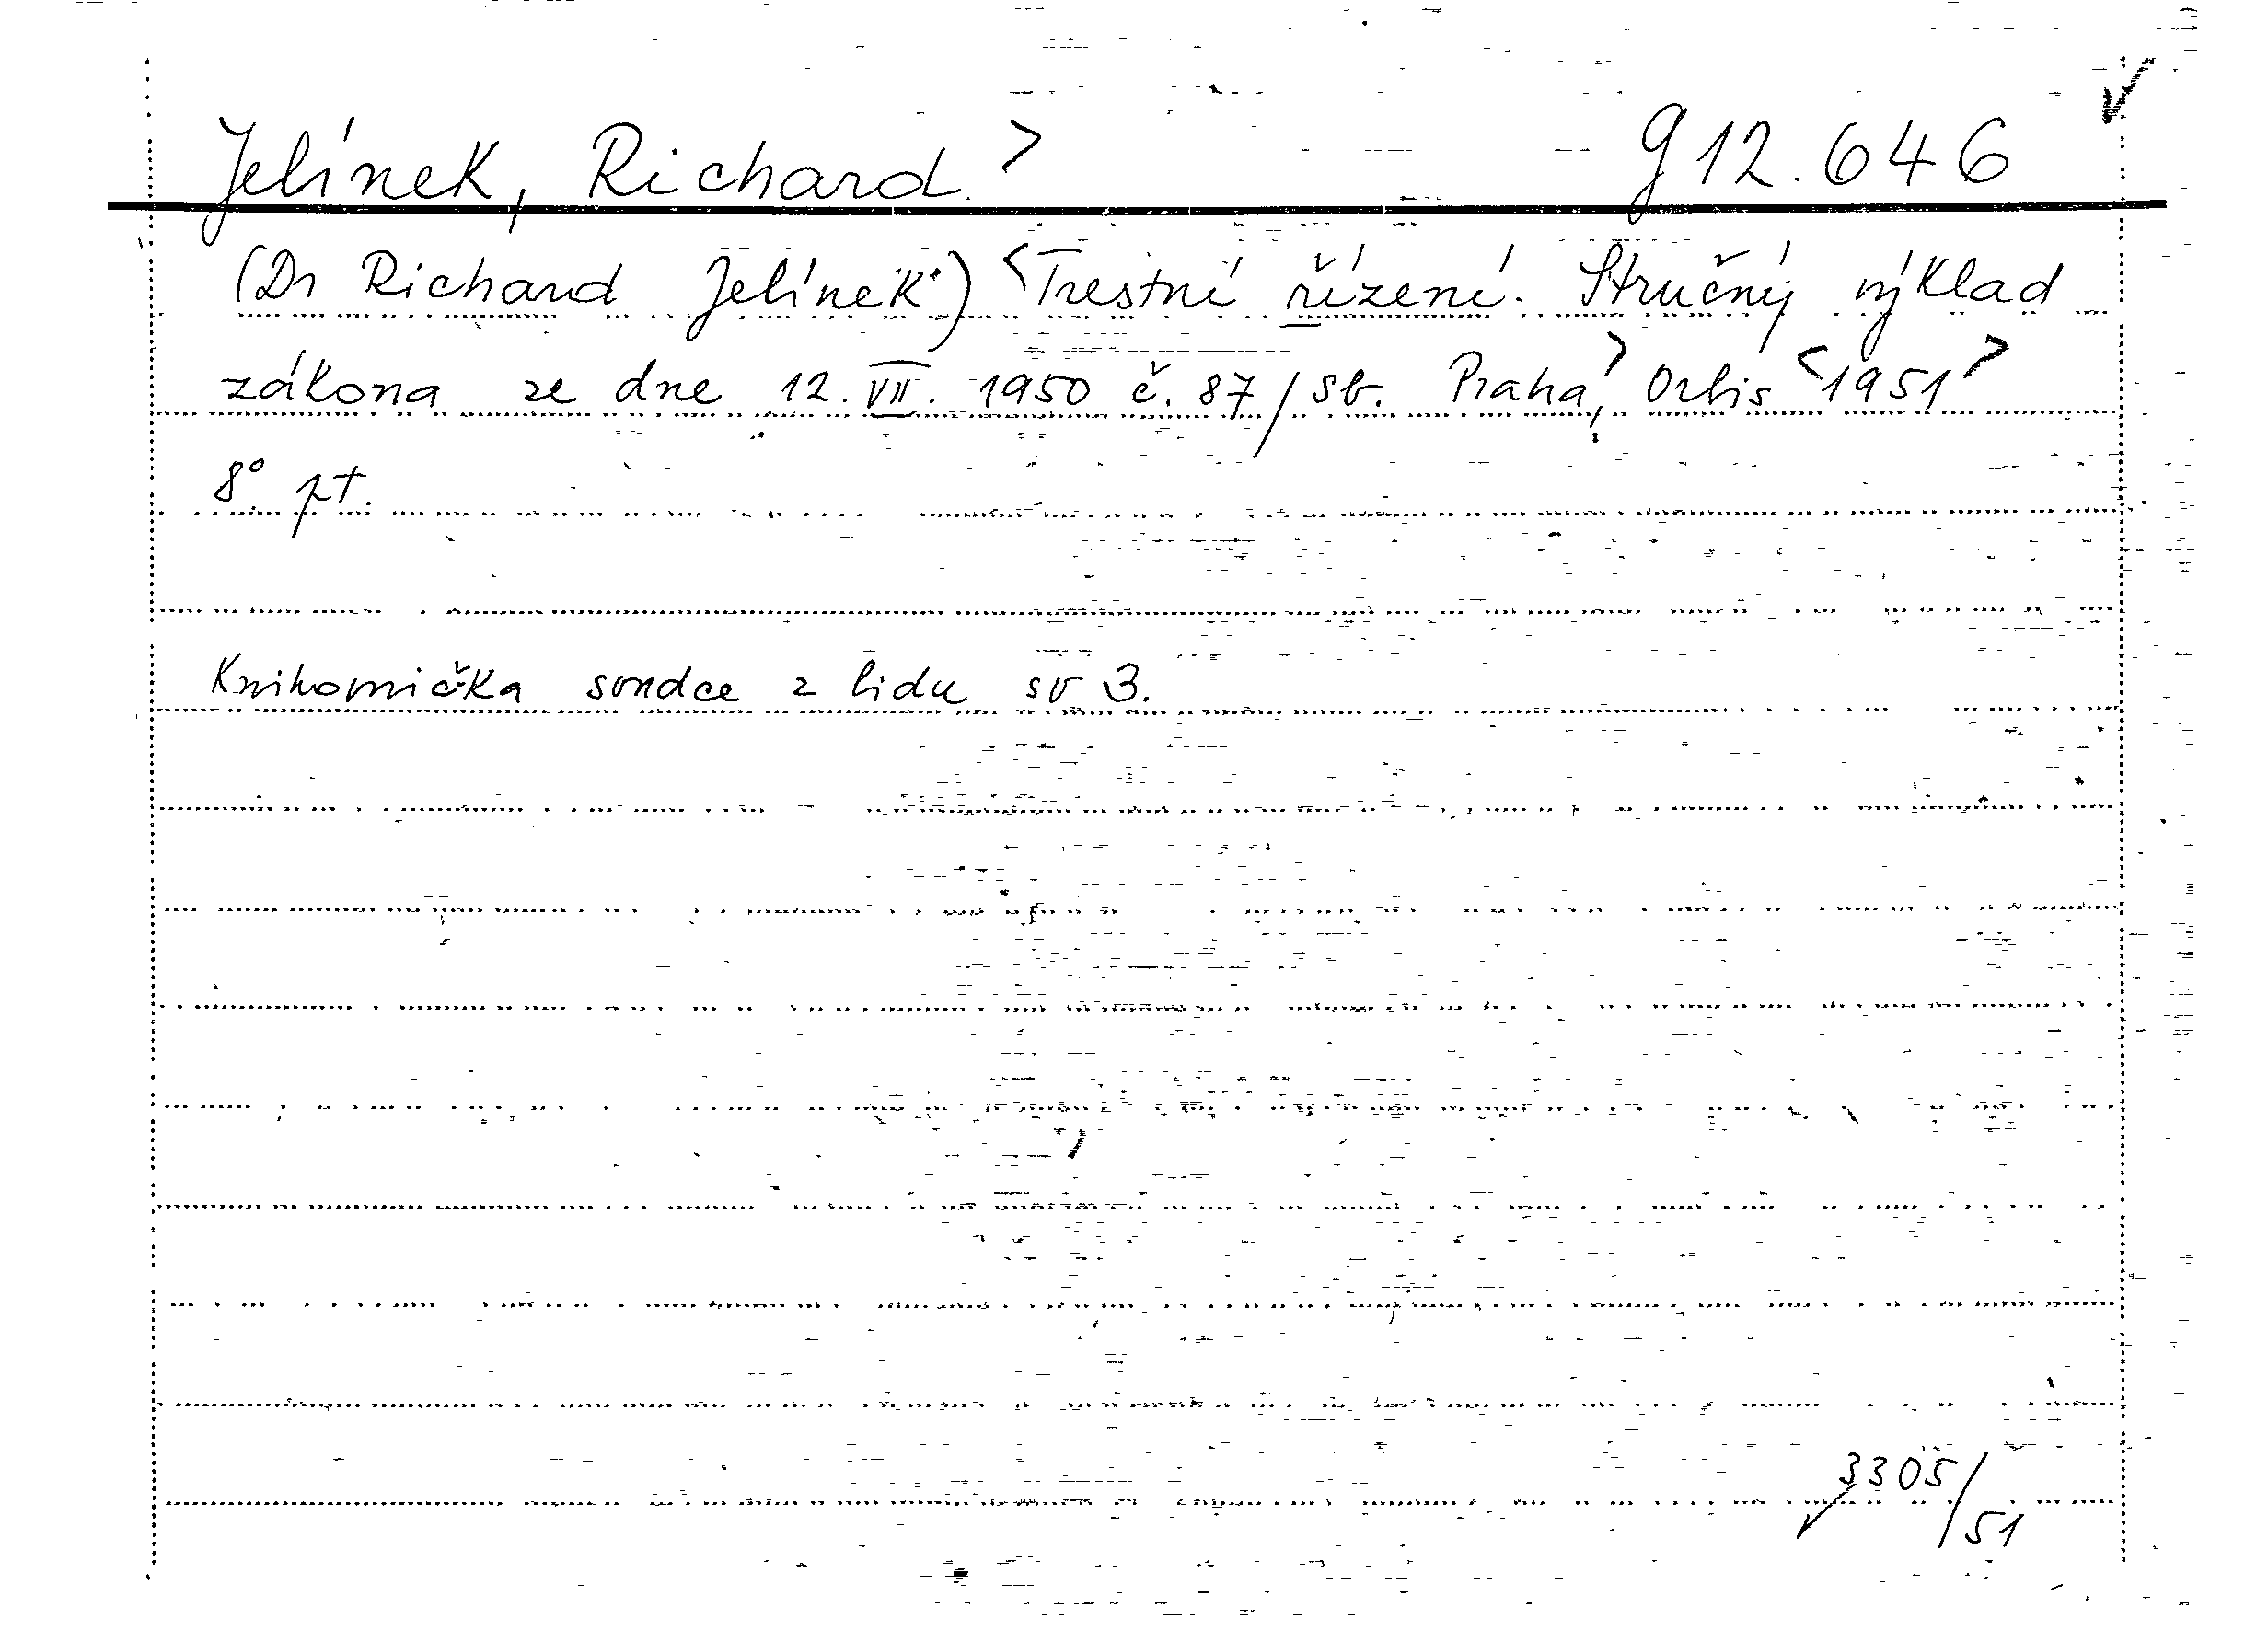 Jelínek, Richard. > g 12.646
(Dr Richard Jelínek:) <Trestní řízení. Stručný výklad
zákona ze dne 12. VII. 1950 č. 87/Sb. Praha,> Orbis <1951>
8° pt.
Knihovnička soudce z lidu sv 3.
3305/51